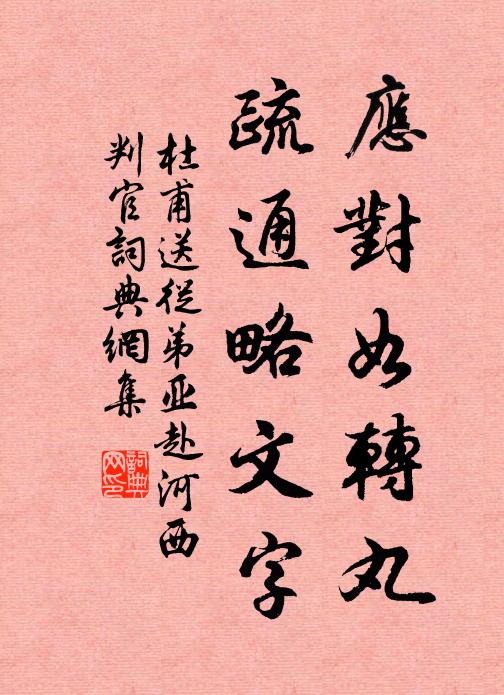 應對如轉丸
疏通略文字
杜甫送從弟亚赴河西
判官詞典網集
詞典
网印